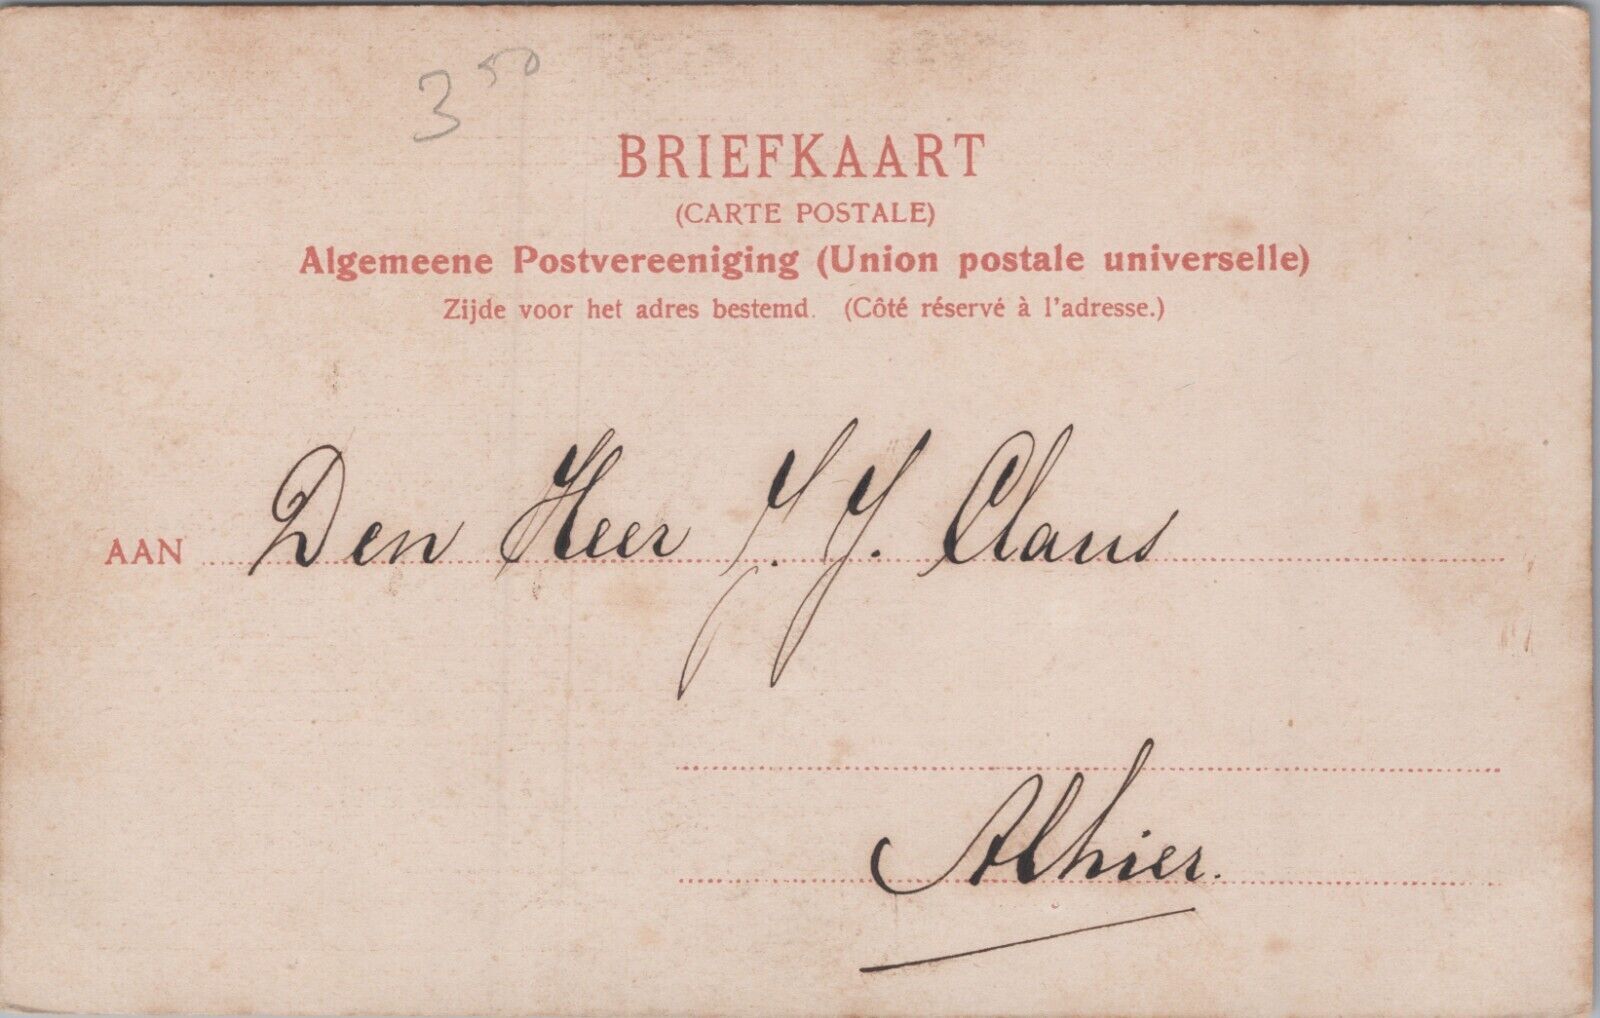 3 50
BRIEFKAART
(CARTE POSTALE)
Algemeene Postvereeniging (Union postale universelle)
Zijde voor het adres bestemd. (Côté réservé à l'adresse.)
AAN Den Heer J. J. Claus
Alhier.